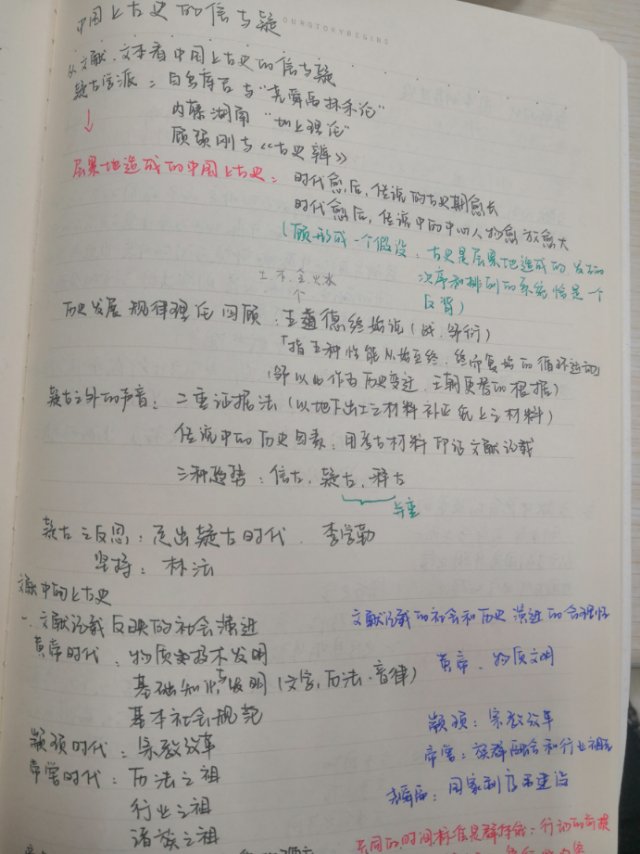 中国上古史的信与疑
OURSTORYBEGINS
从文献、文本看中国上古史的信与疑
疑古学派：白鸟库吉与"尧舜禹抹杀论"
内藤湖南 "加上理论"
顾颉刚与《古史辨》
↓
层累地造成的中国上古史：时代愈后，传说的古史期愈长
时代愈后，传说中的中心人物愈放愈大
(顾形成一个假设：古史是层累地造成的，发生的
次序和排列的系统恰是一个
反背)
土 木 金 火 水
历史发展规律理论回顾：五德终始说(战.邹衍)
"指五种性能从始至终、终而复始的循环运动
(邹以此作为历史变迁、王朝更替的根据)
疑古之外的声音：二重证据法(以地下出土之材料补正纸上之材料)
传说中的历史因素：用考古材料印证文献记载
三种趋势：信古、疑古、释古
疑古之反思：走出疑古时代. 李学勤
坚持：林沄
文献中的上古史
一. 文献记载反映的社会演进
文献记载的社会和历史演进的合理性
黄帝时代：物质技术发明
基础知识与发明(文字,历法.音律)
基本社会规范
黄帝：物质文明
颛顼时代：宗教改革
颛顼：宗教改革
帝喾时代：历法之祖
行业之祖
诸族之祖
帝喾：族群融合和行业祖先
尧舜禹：国家制度建设